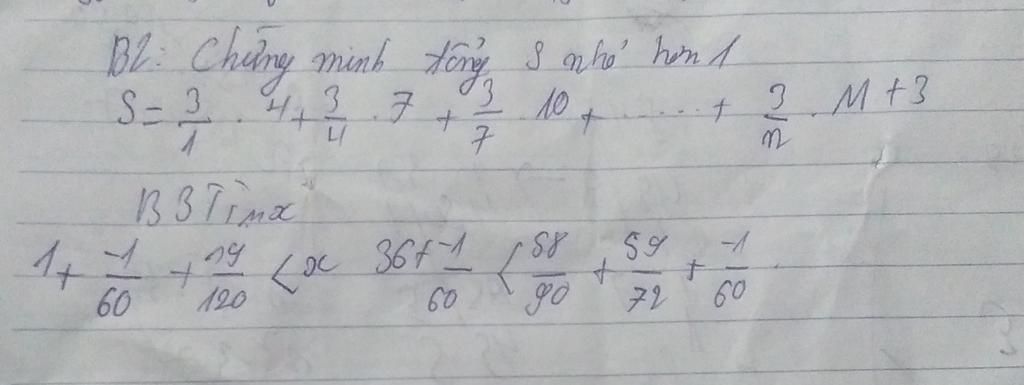 B2: Chứng minh tổng S nhỏ hơn 1
S = 3/1 . 4 + 3/4 . 7 + 3/7 . 10 + ...... + 3/n . M + 3
B3 Tìm x
1 + -1/60 + 19/120 < x 36 + -1/60 < 58/90 + 59/72 + -1/60